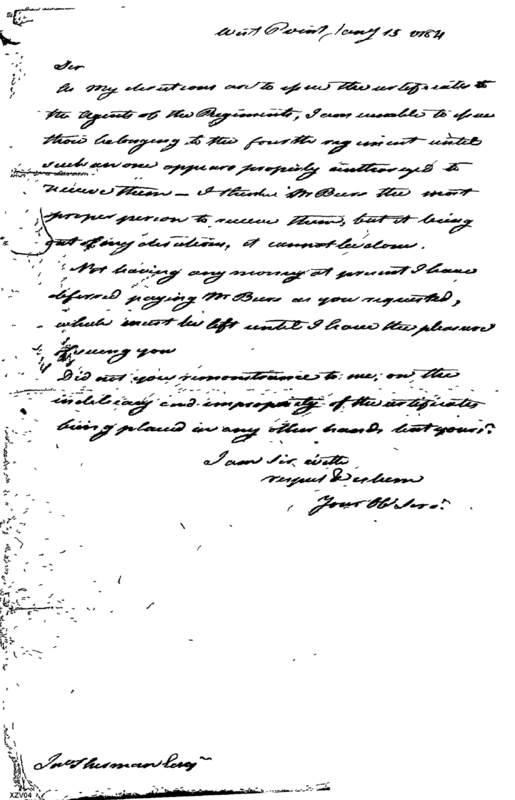 West Point, Jany 15 1784
Sir
As my directions are to issue the certificates to
the Agents of the Regiments, I am unable to issue
those belonging to the fourth regiment until
such an one appears properly authorized to
receive them — I think Mr Beers the most
proper person to receive them, but it being
out of my directions, it cannot be done.
Not having any money at present I have
deferred paying Mr Beers as you requested,
which must be left until I have the pleasure
of seeing you
Did not you remonstrance to me, on the
indelicacy and impropriety of the certificates
being placed in any other hands but yours.
I am Sir with
respect & esteem
Your Ob Serv.
Jno Sherman Esqr
XZV04